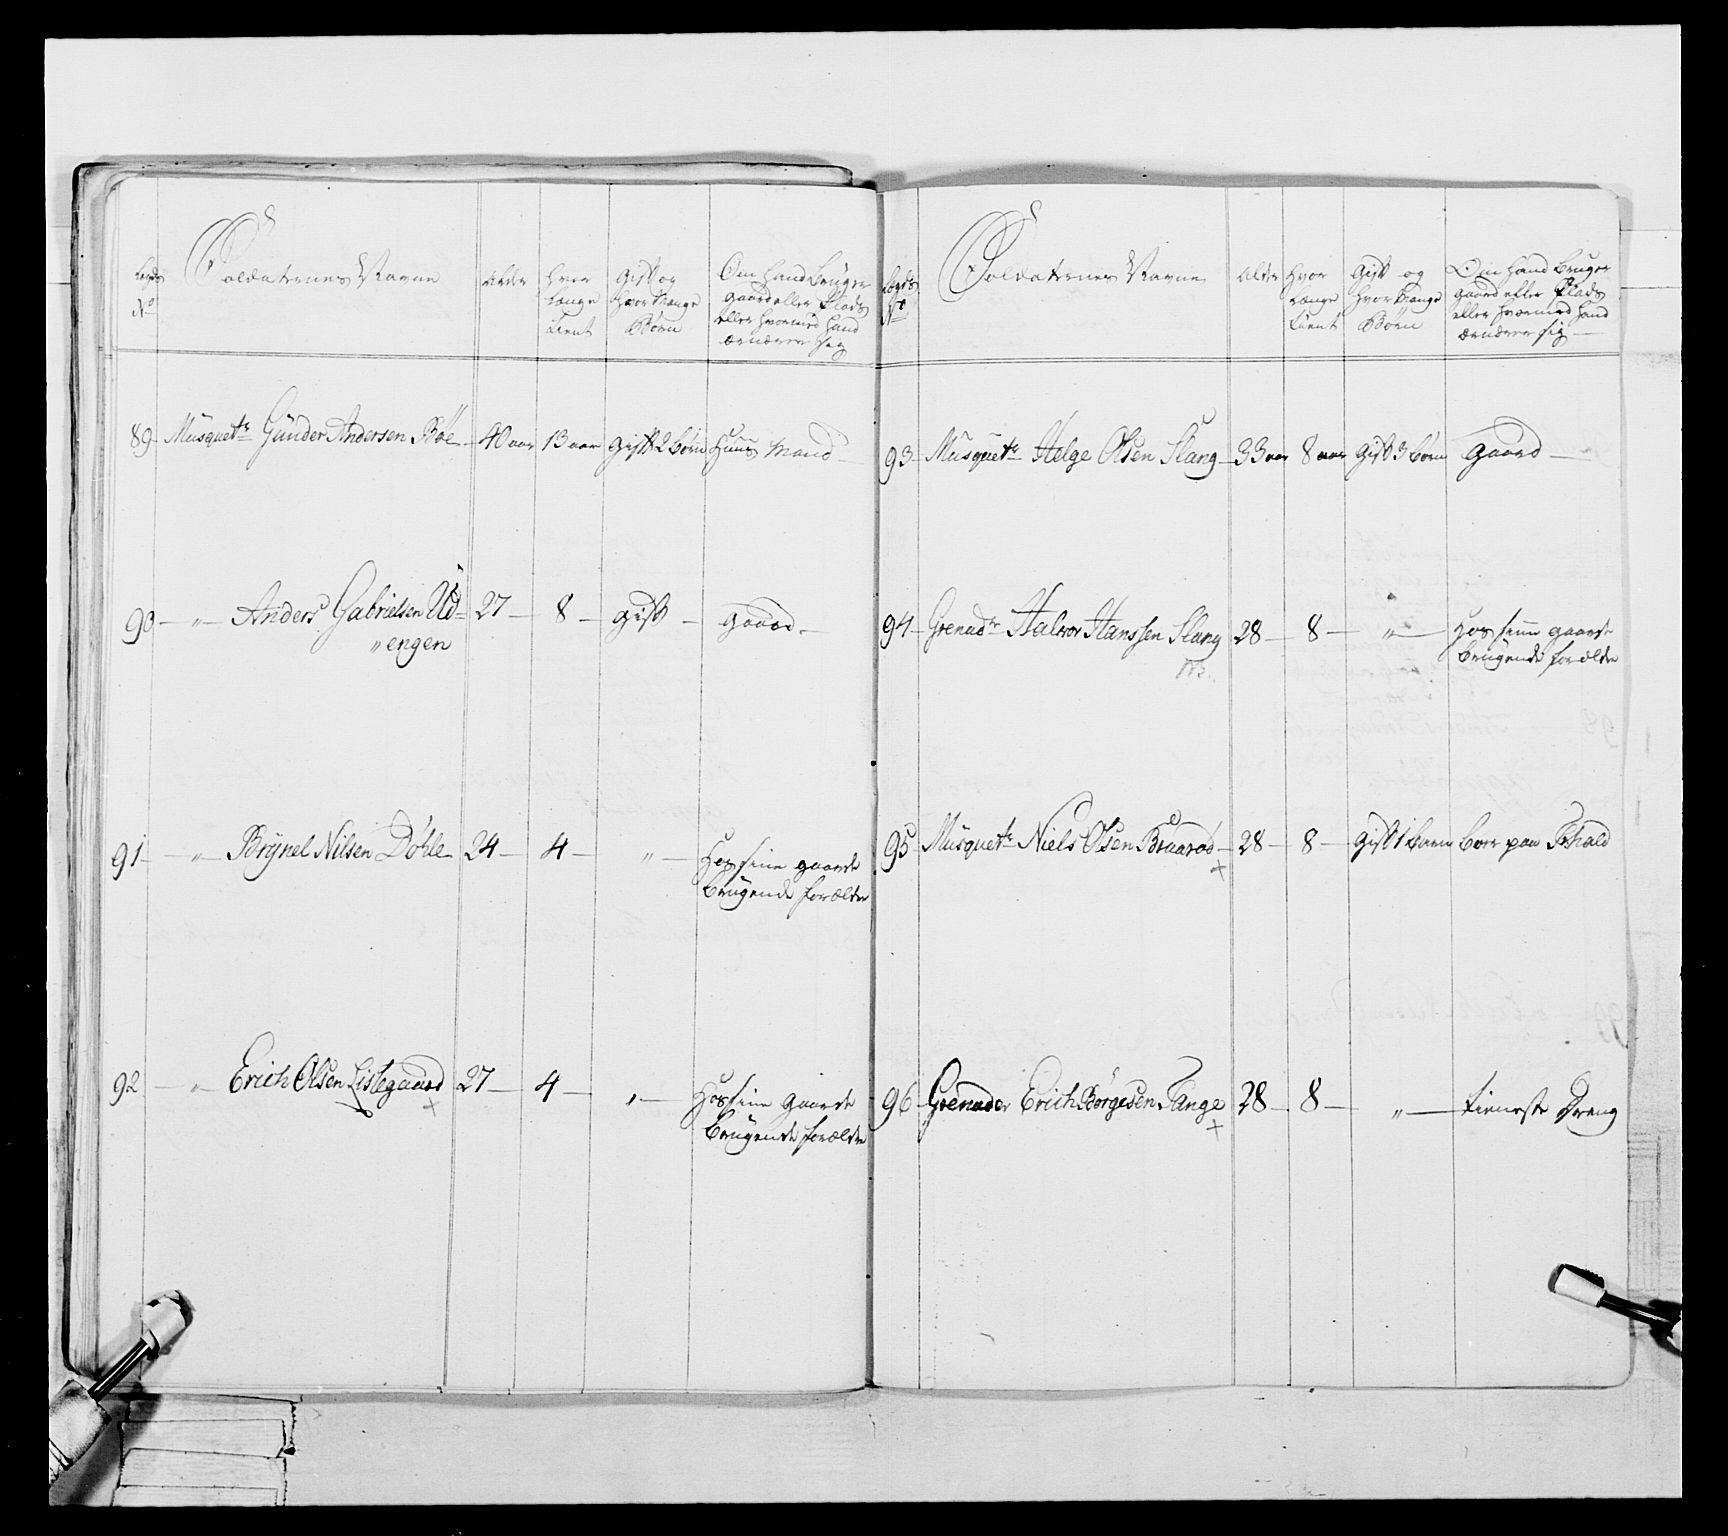 Legds No Soldaternes Navne Alder Hvor Længe tient Gift og Hvor Mange Børn Om Hand Bruger gaard eller Plads eller Hvormed Hand ærnærer sig
89 Musquetr Gunder Andersen Bøe 40 aar 13 aar gift 2 børn Huus Mand
90 " Anders Gabrielsen Ud- 27 8 gift gaard
"engen
91 " Brynel Nilsen Döhle 24 4 " Hos sine gaards
brugende forældre
92 " Erich Olsen Lislegaard 27 4 " Hos sine gaards
brugende forældre
Legds No Soldaternes Navne Alder Hvor Længe tient Gift og Hvor Mange Børn Om Hand Bruger gaard eller Plads eller Hvormed Hand ærnærer sig
93 Musquetr Helge Olsen Slang 33 aar 8 aar gift 3 børn gaard
94 Grenadr Halvor Hanssen Slang 28 8 " Hos sine gaards
brugende forældre
95 Musquetr Niels Olsen Braarød 28 8 gift 1 barn boer paa
96 Grenader Erich Børgesen Tange 28 8 " tieneste Dreng